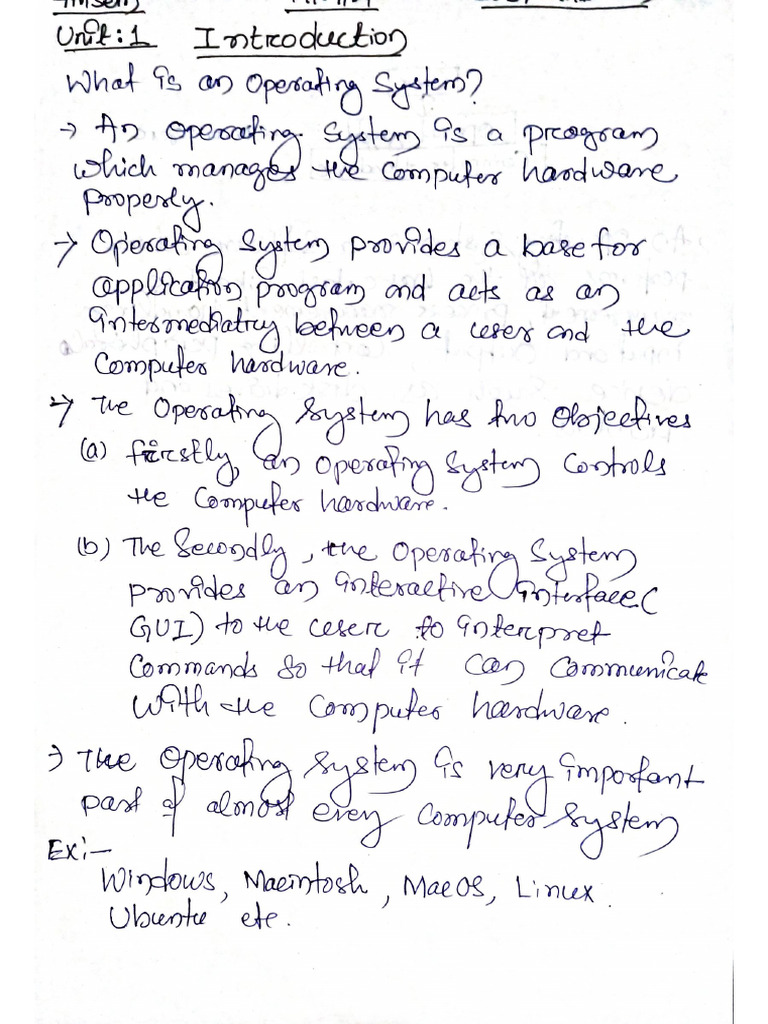 Unit:1 Introduction
What is an Operating System?
→ An Operating System is a program
which manages the Computer hardware
properly.
→ Operating System provides a base for
application program and acts as an
intermediatry between a user and the
Computer hardware.
→ The Operating System has two Objectives
(a) firstly, an Operating System Controls
the Computer hardware.
(b) The Secondly, the Operating System
provides an interactive interface (
GUI) to the user to interpret
Commands so that it can Communicate
with the Computer hardware.
→ The Operating System is very important
part of almost every Computer System
Ex:-
Windows, Macintosh, MacOS, Linux.
Ubuntu etc.